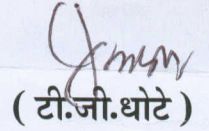 ( टी.जी.धोटे )